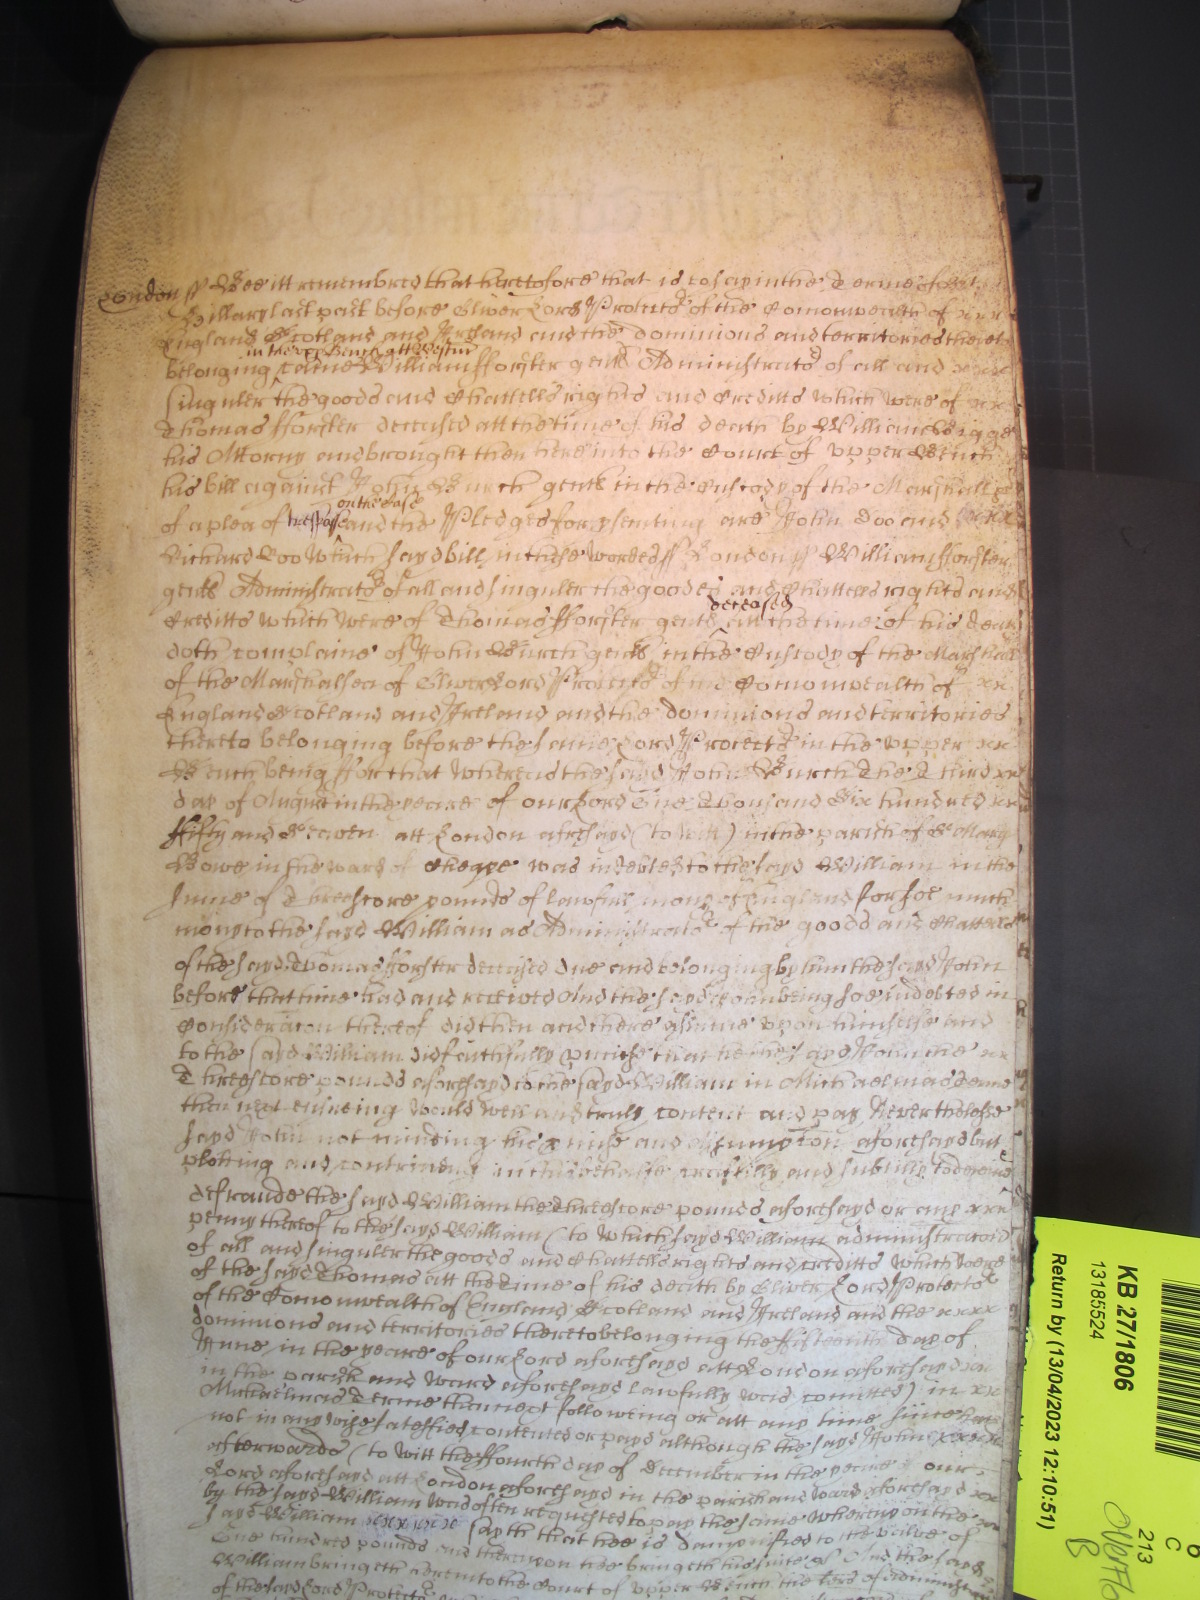 London ss Bee itt remembred that heretofore that is to say in the Terme of St
Hillary last past before Oliver Lord Protector of the Comonwealth of xxx
England Scotland and Ireland and the dominions and territories thereto
in the upp Bench att Westmr
belonging came William fforster gent Administrator of all and xxxx
singuler the goods and Chattells rights and Creditts which were of xx
Thomas fforster deceased att the time of his death by William
his Attorny and brought then here into the Court of upper Bench
his bill against John Burch gent in the Custody of the Marshall &c
on the Case
of a plea of trespasse and the Pledges for psenting are John Doo and xxxx
Richard Roo Which sayd bill in these wordes ss London ss William fforster
gent Administrator of all and singuler the goodes and Chattells rights and
deceased
Creditts which were of Thomas fforster gent att the time of his death
doth complaine of John Burch gent in the Custody of the Marshall
of the Marshalsea of Oliver Lord Protector of the Comonwealth of xx
England Scotland and Ireland and the dominions and territories
thereto belonging before the same Lord Protector in the upper xx
Bench being ffor that whereas the sayd John Burch the third xx
day of August in the yeare of our Lord One Thousand Six hundred xx
ffifty and Seaven att London aforesayd (to Witt) in the parish of St Mary
Bowe in the ward of Cheape was indebted to the sayd William in the
summe of Threescore pounds of lawfull mony of England for soe much
mony to the sayd William as Administrator of the goods and Chattells
of the sayd Thomas fforster deceased due and belonging by him the sayd John
before that time had and received And the sayd John being soe indebted in
Consideracon thereof did then and there assume upon himselfe and
to the sayd William did faithfully promise that hee the sayd John the xx
Threescore pounds aforesayd to the sayd William in Michaelmas Terme
then next ensueing would well and truly content and pay Neverthelesse
sayd John not minding his promise and assumpcon aforesayd but
ploting and contriveing in this behalfe craftilly and subtilly
defraude the sayd William the Threescore pounds aforesayd or any xxx
penny thereof to the sayd William (to Which sayd William administracon
of all and singuler the goods and Chattells rights and creditts which were
of the sayd Thomas att the time of his death by Oliver Lord Protector
of the Comonwealth of England Scotland and Ireland and the xxxx
dominions and territories thereto belonging the ffifteenth day of
June in the yeare of our Lord aforesayd att London aforesayd xx
in the parish and Ward aforesayd lawfully was comitted) in xx
Michaelmas Terme then next following or att any time since hath
not in any wise satesfied contented or payd although the sayd John xxxx
afterwards (to witt the ffourth day of December in the yeare of our
Lord aforesayd att London aforesayd in the parish and Ward aforesayd xx
by the sayd William was often requested to pay the same Whereupon the xx
sayd William xxxxxxx sayth that hee is dampnified to the vallue of
One hundred pounds and thereupon hee bringeth his suite &c And the sayd
William bringeth here into the Court of upper Bench the
of the sayd Lord Protector
KB 27/1806
13185524
Return by (13/04/2023 12:10:51)
C
213